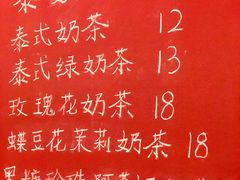 泰式奶茶 12
泰式绿奶茶 13
玫瑰花奶茶 18
蝶豆花茉莉奶茶 18
黑糖珍珠